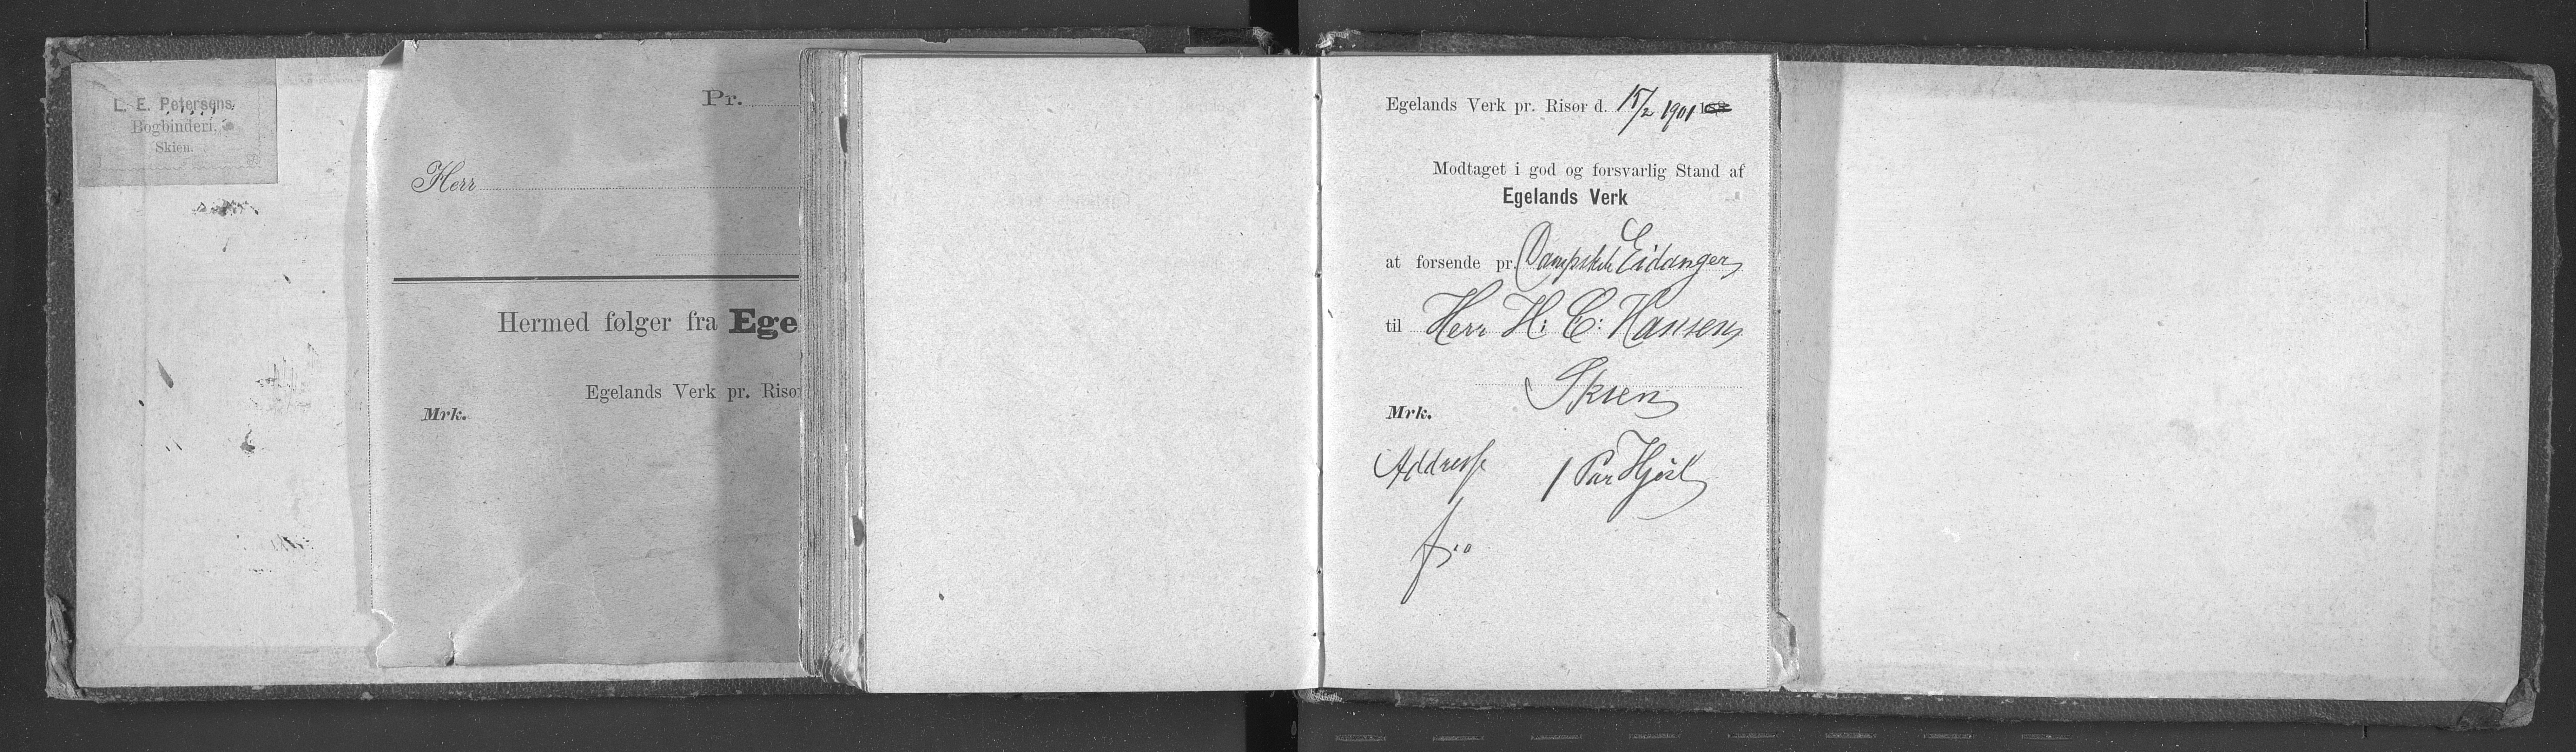 L. E. Petersens
Bogbinderi,
Skien.
Pr.
Herr
Hermed følger fra Ege
Egelands Verk pr. Risor
Mrk.
Egelands Verk pr. Risør d. 15/2 1901 188
Modtaget i god og forsvarlig Stand af
Egelands Verk
at forsende pr. Dampskib Eidanger
til Herr H: C: Hansen
Skien
Mrk.
Addresse 1 Par Hjul